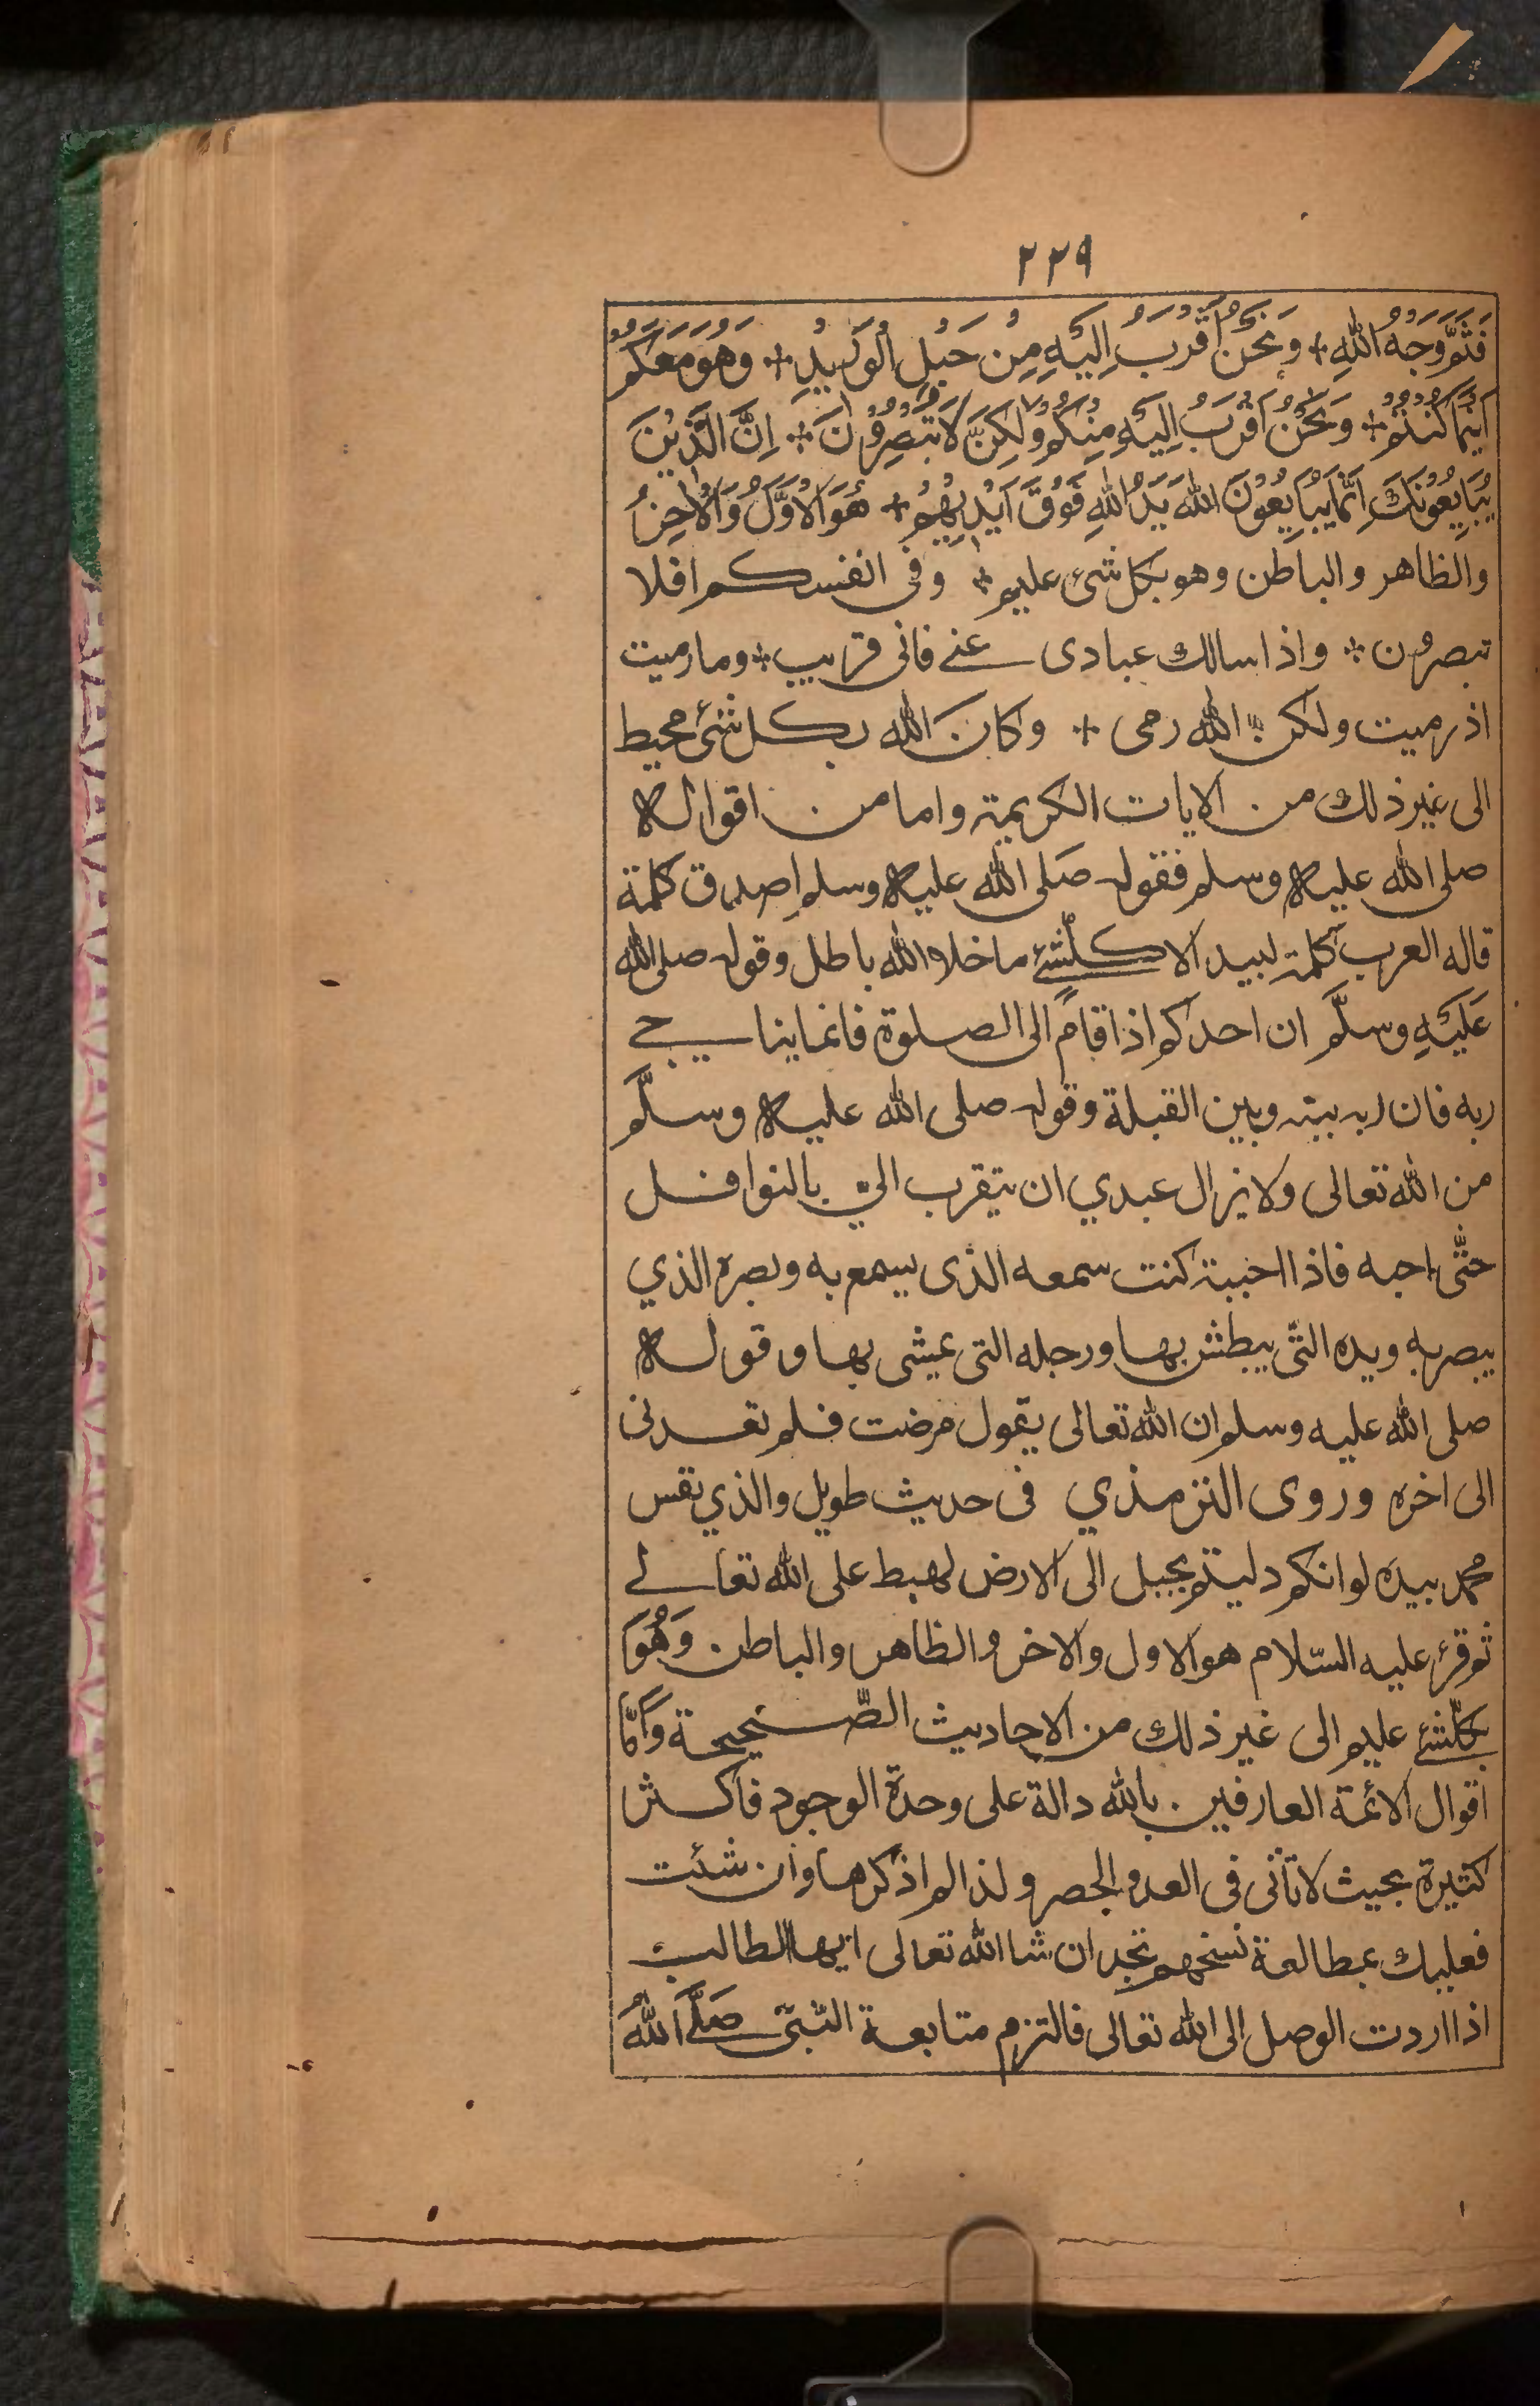 ٢٢٩
فَثَمَّ وَجْهُ اللّٰهِ + وَنَحْنُ أَقْرَبُ اِلَيْهِ مِنْ حَبْلِ الْوَرِيْدِ + وَهُوَ مَعَكُمْ
اَيْنَمَا كُنْتُمْ + وَنَحْنُ اَقْرَبُ اِلَيْهِ مِنْكُمْ وَلٰكِنْ لَا تُبْصِرُوْنَ + اِنَّ الَّذِيْنَ
يُبَايِعُوْنَكَ اِنَّمَا يُبَايِعُوْنَ اللّٰهَ يَدُ اللّٰهِ فَوْقَ اَيْدِيْهِمْ + هُوَ الْاَوَّلُ وَالْاٰخِرُ
والظاهر والباطن وهو بكل شئ عليم + وفي انفسكم افلا
تبصرون + واذا سالك عبادى عنے فانى قريب + وما رميت
اذ رميت ولكن الله رمى + وكانَ الله بكل شئ محيط
الى غير ذلك من الايات الكريمة واما من اقواله
صلى الله عليه وسلم فقوله صَلى الله عليه وسلم اصدق كلمة
قاله العرب كلمة لبيد الا كلشئے ما خلا الله باطل وقوله صلى الله
عَلَيْهِ وسلَّم ان احدكم اذا قامَ الى الصلوة فانما يناجے
ربه فان ربه بينه وبين القبلة وقوله صلى الله عليه وسلَّم
من الله تعالى ولا يزال عبدي ان يتقرب الي بالنوافل
حتّى احبه فاذا احببته كنت سمعه الذى يسمع به وبصره الذي
يبصر به ويده التّى يبطش بها ورجله التى يمشى بها وقوله
صلى الله عليه وسلم ان الله تعالى يقول مرضت فلم تعدنى
الى اخره وروى الترمذي فى حديث طويل والذي نفس
محمد بيده لو انكم دليتم بحبل الى الارض لهبط على الله تعالے
ثم قرء عليه السّلام هو الاول والاخر والظاهر والباطن وَهُوَ
بكلّشئے عليم الى غير ذلك من الاحاديث الصّحيحة وَاَمّا
اقوال الائمة العارفين بالله دالة على وحدة الوجود فاكثر
كثيرة بحيث لا تأتى فى العد والحصر ولذا لم اذكرها وان شئت
فعليك بمطالعة نسخهم تجد ان شا الله تعالى ايها الطالب
اذا اردت الوصل الى الله تعالى فالتزم متابعة النّبىّ صَلَّے اللهُ